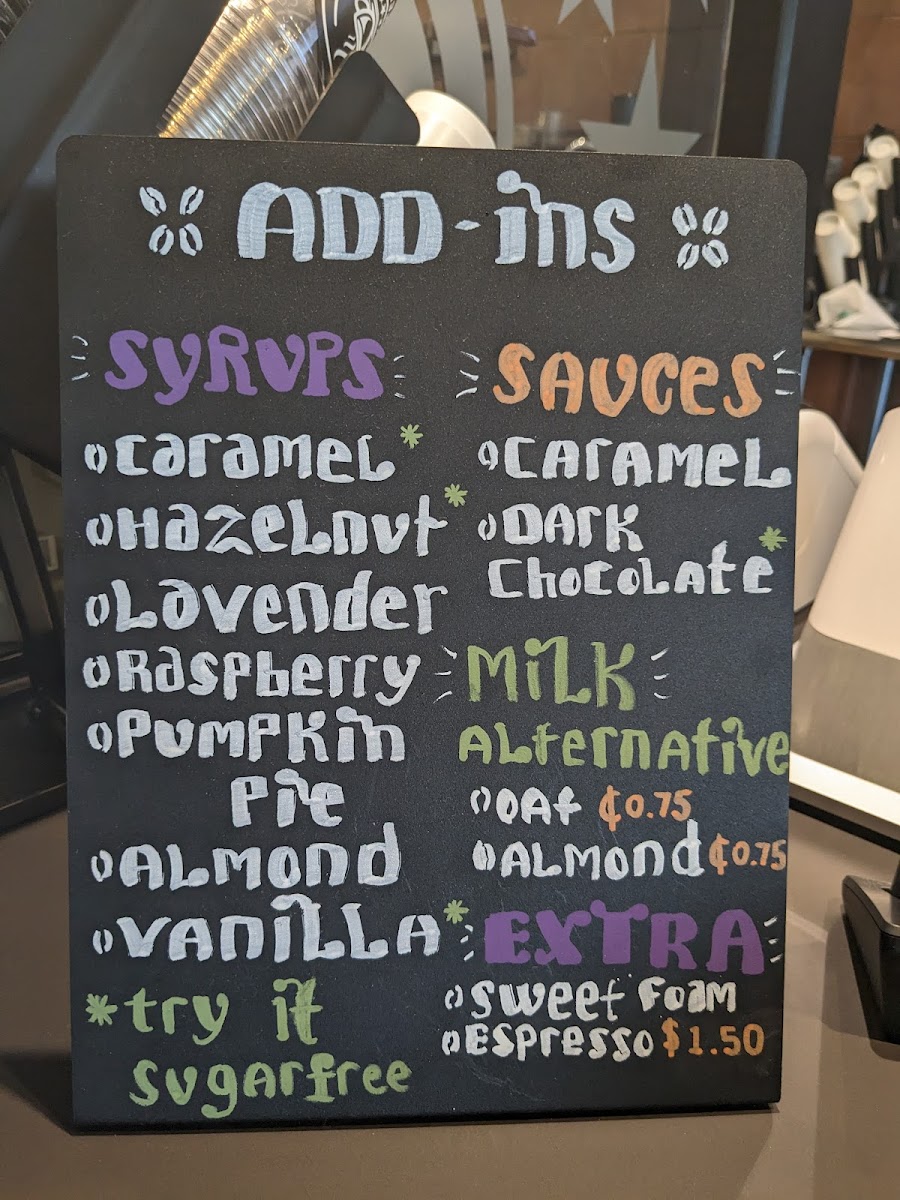 ADD-ins
SyRUPS
Caramel*
Hazelnut*
Lavender
Raspberry
Pumpkin
Pie
Almond
Vanilla*
*try it
sugarfree
Sauces
Caramel
Dark
Chocolate*
Milk
Alternative
Oat ₵0.75
Almond ₵0.75
EXTRA
Sweet Foam
Espresso $1.50